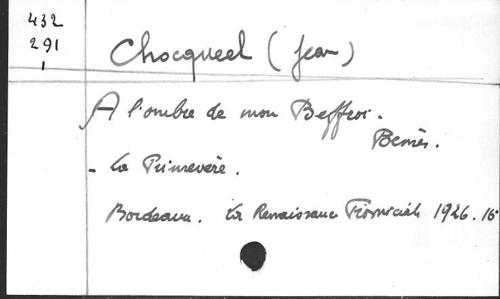 432
291
1
Chocqueel (Jean)
A l'ombre de mon Beffroi.
- La Primevère.
Bordeaux. La Renaissance Provinciale 1926. 16°